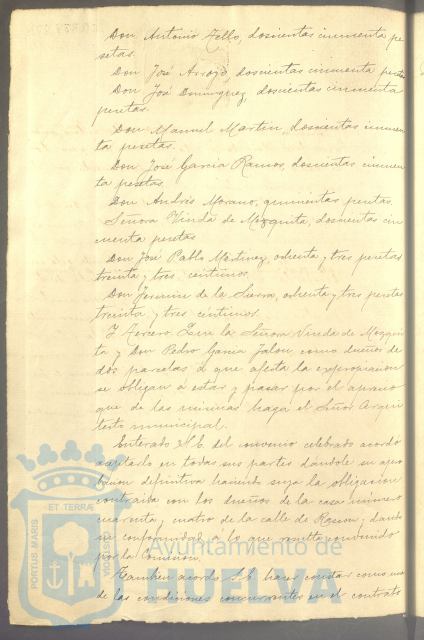 Don Antonio Tello, doscientas cincuenta pe
setas.
Don José Arroyo, doscientas cincuenta pesetas
Don José Dominguez, doscientas cincuenta
pesetas.
Don Manuel Martin, doscientas cincuen
ta pesetas.
Don José Garcia Ramos, doscientas cincuen
ta pesetas.
Don Andrés Morano, quinientas pesetas.
Señora Viuda de Mezquita, doscientas cin
cuenta pesetas
Don José Pablo Martinez, ochenta y tres pesetas
treinta y tres centimos.
Don Jeronimo de la Sierra, ochenta y tres pesetas
treinta y tres centimos.
Y Tercero Que la Señora Viuda de Mezqui
ta y Don Pedro Garcia Jalon como dueños de
dos parcelas a que afecta la expropiacion
se obligan a estar y pasar por el aprecio
que de las mismas haga el Señor Arqui
tecto municipal.
Enterado S.E. del convenio celebrado acordó
aceptarlo en todas sus partes dándole su apro
bacion definitiva haciendo suya la obligacion
contraida con los dueños de la casa número
cuarenta y cuatro de la calle de Rascon; dando
su conformidad a lo que resulta convenido
por la Comision.
Tambien acordó S.E. hacer constar como una
de las condiciones concurrentes en el contrato
PORTUS MARIS ET TERRÆ CUSTODIA
Ayuntamiento de
HUELVA